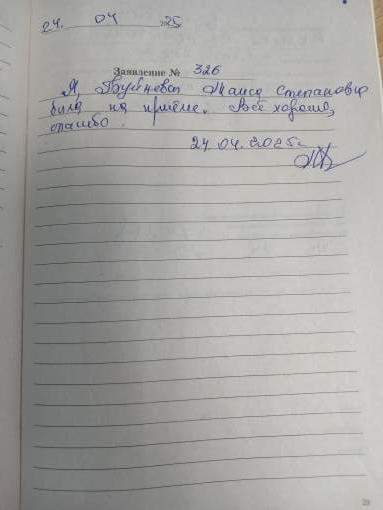 24. 04 25
Заявление № 326
Я, Таиса Степановна
была на приёме. Всё хорошо,
спасибо.
24.04.2025г